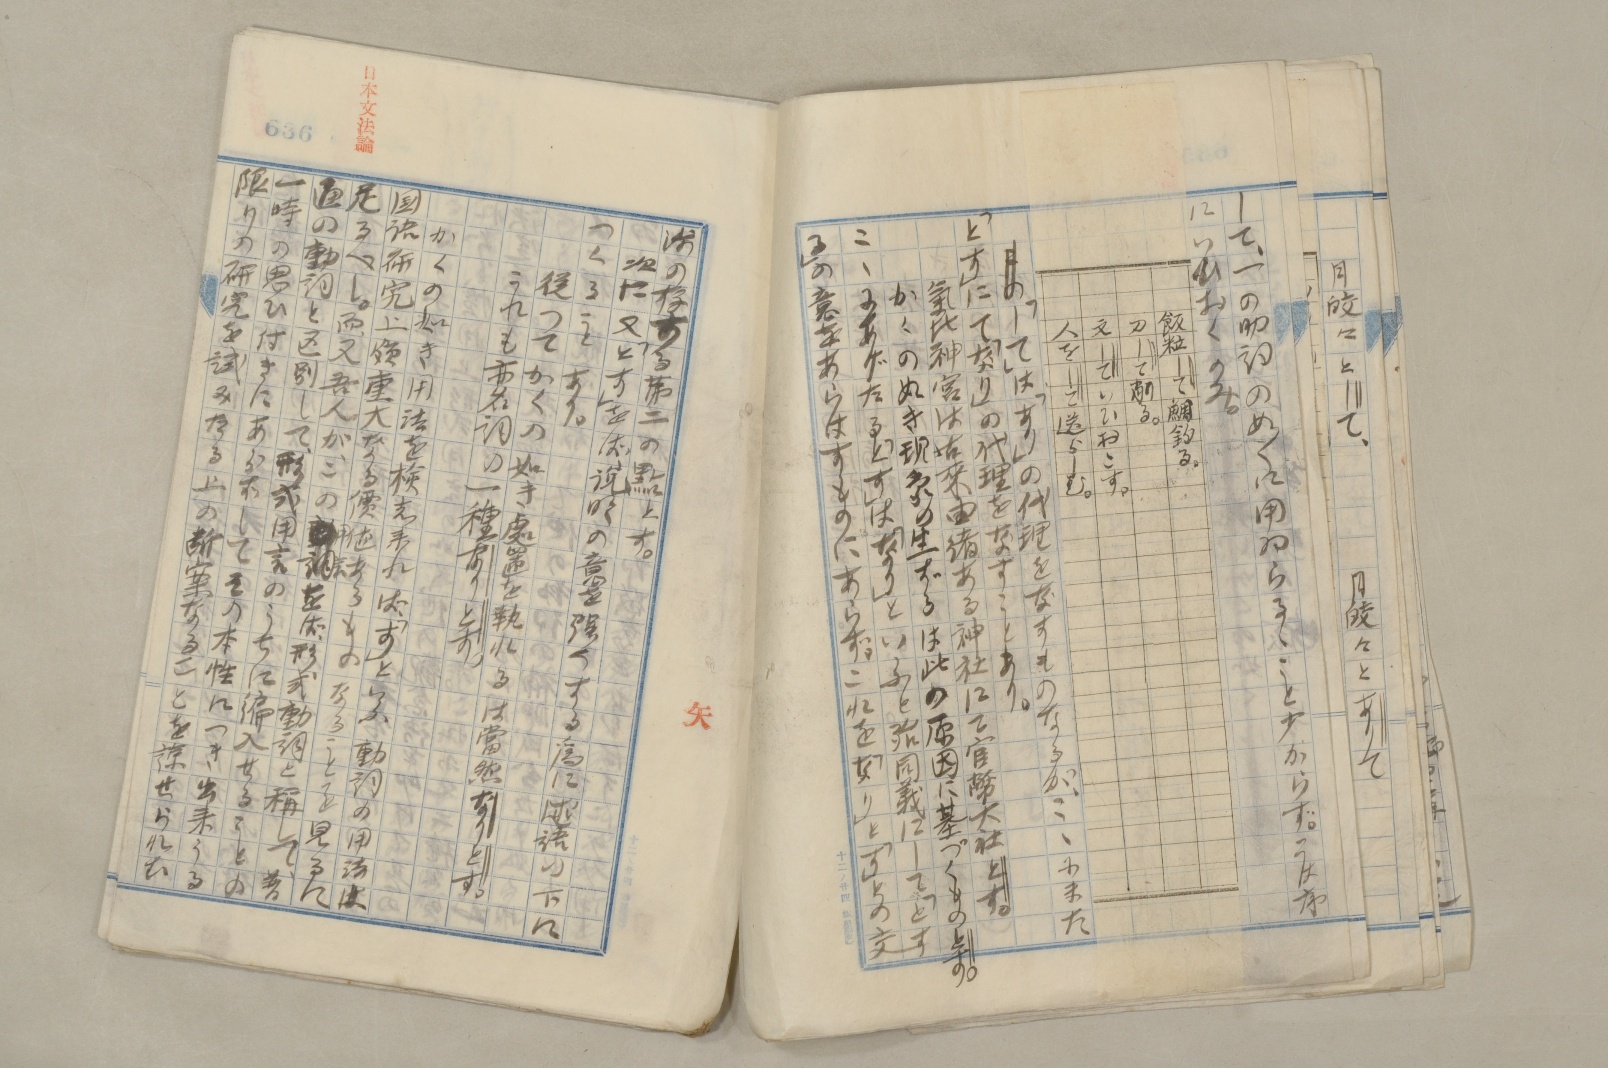 月皎々として、
月皎々とありて
して、一の助詞の如くに用ゐらるゝこと少からず。こは序
にいひおくのみ。
飯粒して鯛釣る。
刀して削る。
文していひおこす。
人をして送らしむ。
「して」は「あり」の代理をなすものなるが、こゝにまた
「とす」にて「なり」の代理をなすことあり。
氣比神宮は古來由緒ある神社にて官幣大社とす。
かくの如き現象の生ずるは此の原因に基づくものとす。
こゝにあげたる「とす」は「なり」といふと殆同義にして「とす
る」の意をあらはすものにあらず。これを「なり」と「す」との文
法の存する第二の點とす。
次に又「とす」を
つくることあり。
從つてかくの如き處置を執れるは當然なりとす。
これも亦名詞の一種なりとす。
かくの如き用法を検し來れば「す」といふ動詞の用法は
國語研究上頗重大なる價値あるものなることを見るに
足るべし。而又吾人が、この動詞を形式動詞と稱して、普
通の動詞と区別して、形式用言のうちに編入せることの
一時の思ひ付きにあらずしてその本性につき出來うる
限りの研究を試みたる上の断案なることを諒せられむ
日本文法論
636
矢